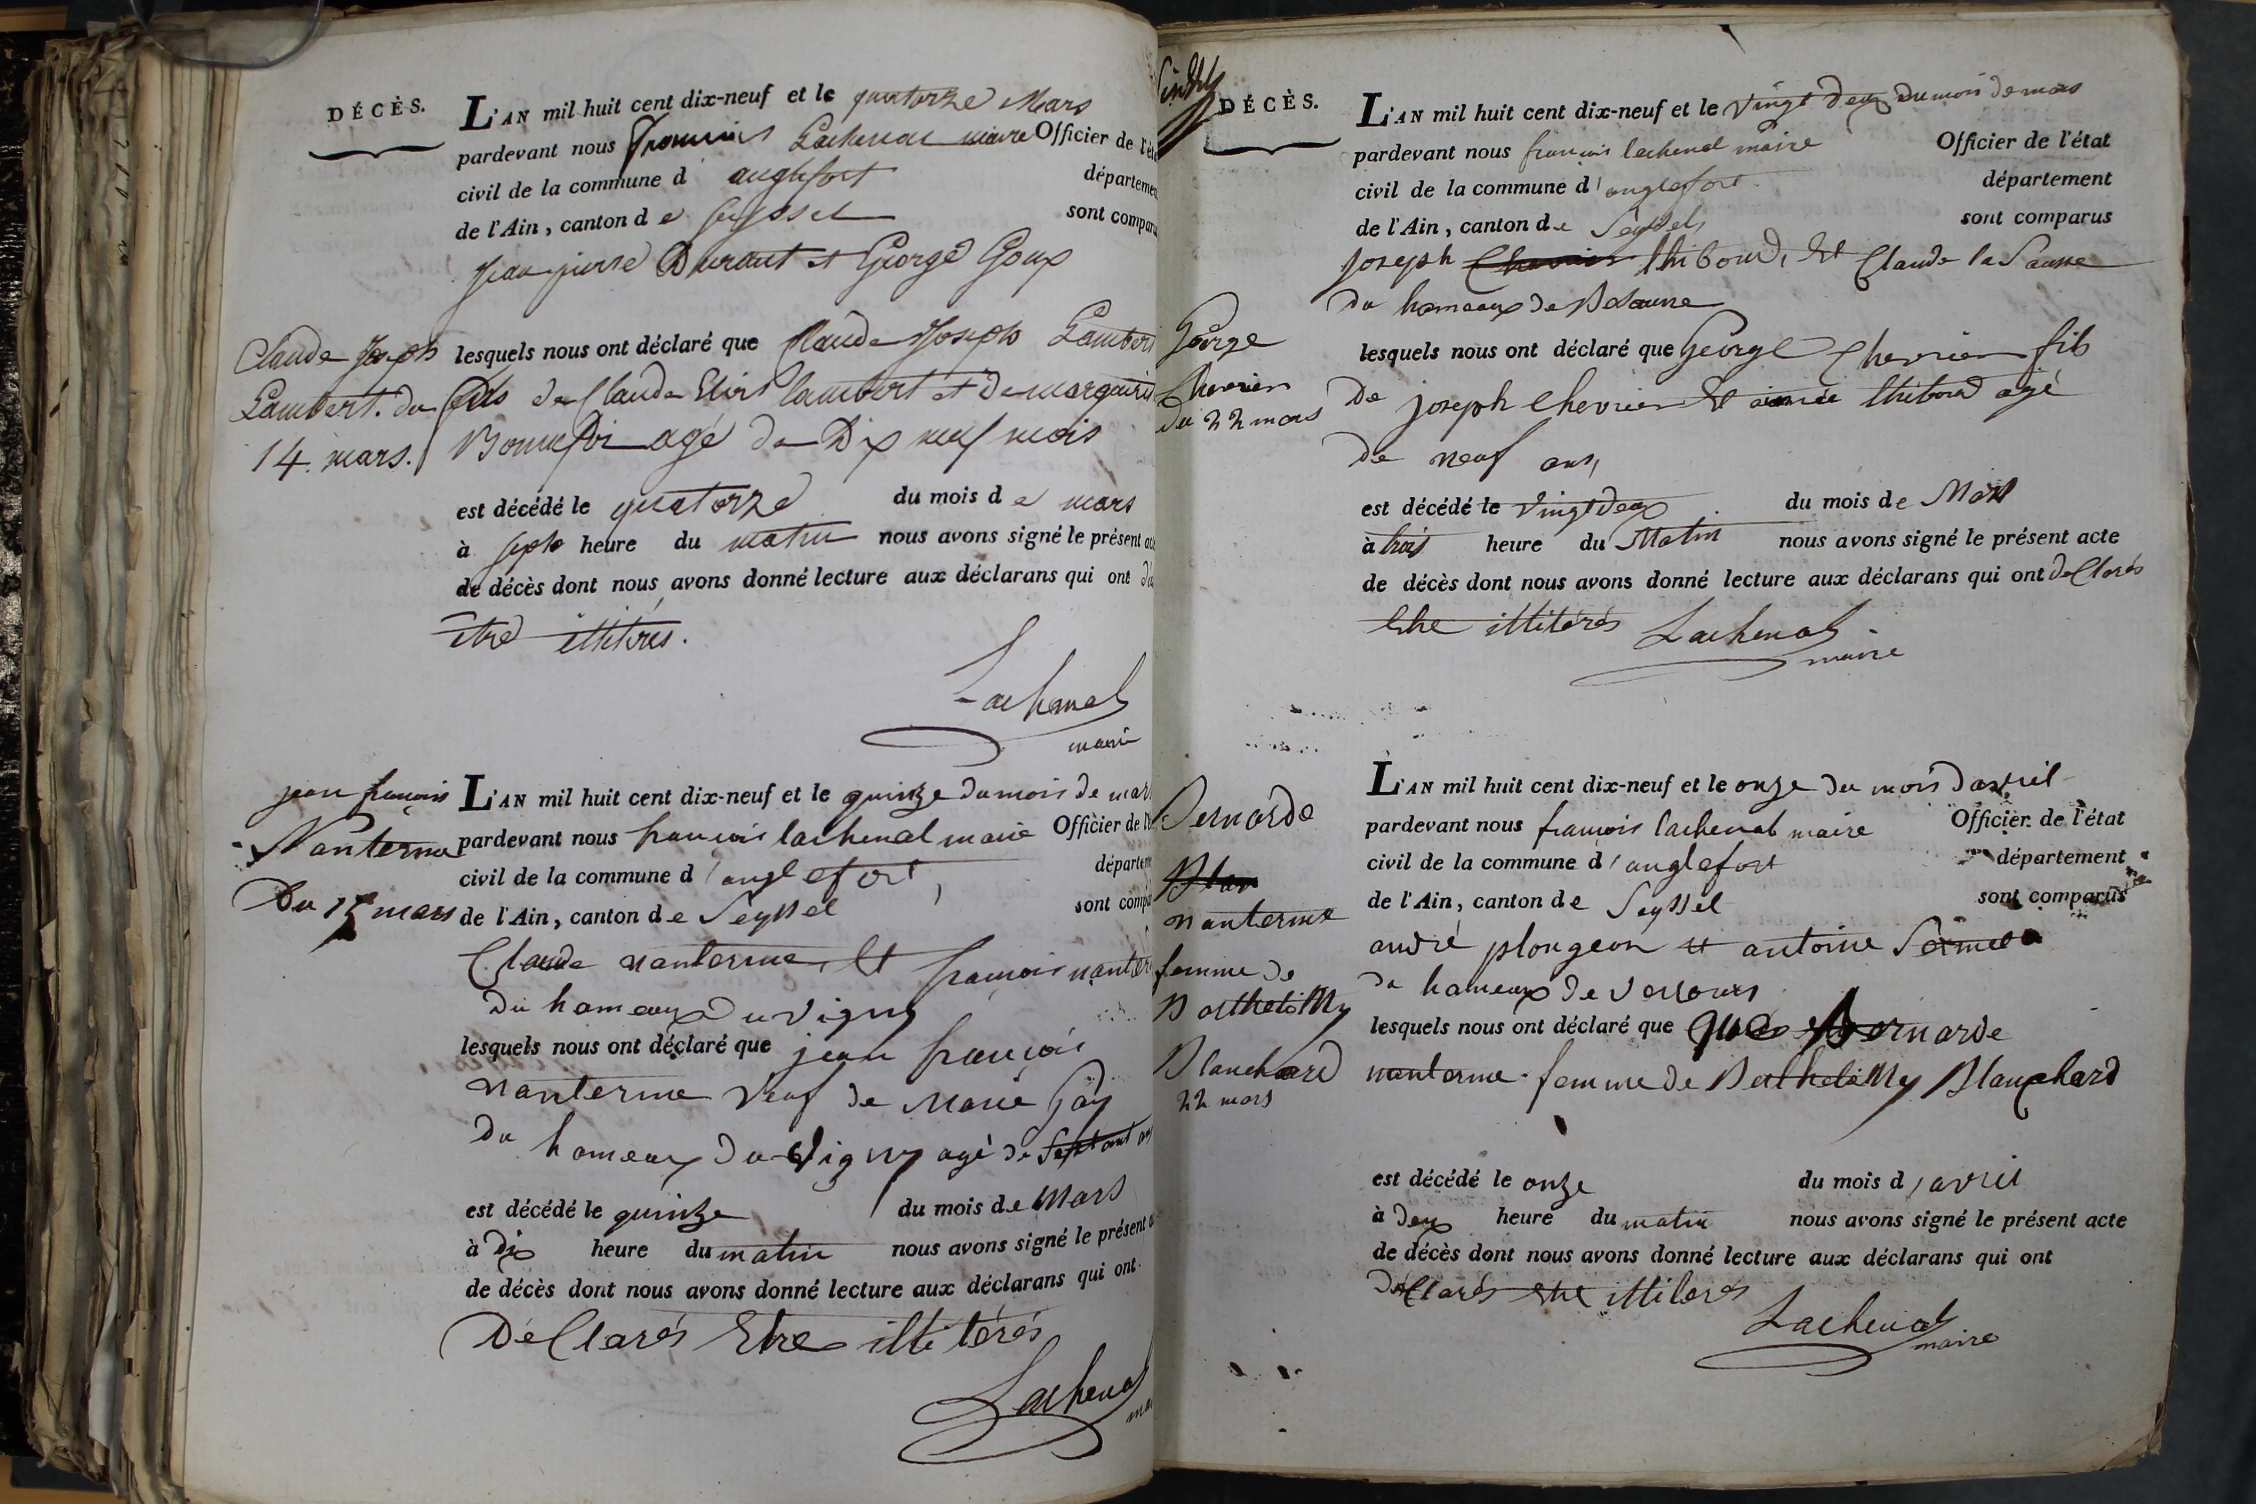 DÉCÈS.
L'AN mil huit cent dix-neuf et le quatorze Mars
pardevant nous François Lachenal maire Officier de l'ét
civil de la commune d anglefort départemen
de l'Ain, canton de Seyssel sont comparu
Jean pierre Durant et George Goux
Claude Joseph
Lambert. du
14. mars.
lesquels nous ont déclaré que Claude Joseph Lambert
fils de Claude lambert et de marguerit
Bonnefoi agé de Dix neuf mois
est décédé le quatorze du mois de mars
à sept heure du matin nous avons signé le présent
de décès dont nous avons donné lecture aux déclarans qui ont
être illitérés.
Lachenal
maire
jean françois
Nanterme
Du 15 mars
L'AN mil huit cent dix-neuf et le quinze du mois de mars
pardevant nous françois lachenal maire Officier de l'
civil de la commune d'anglefort, départem
de l'Ain, canton de Seyssel sont compa
Claude nanterme, Et françois nanter
du hameaux du vigny
lesquels nous ont déclaré que jean françois
nanterme veuf de Marie Gay
du hameaux du vigny agé de septant ans
est décédé le quinze du mois de Mars
à dix heure du matin nous avons signé le présent
de décès dont nous avons donné lecture aux déclarans qui ont
DéClarés Etre illitérés
Lachenal
DÉCÈS.
L'AN mil huit cent dix-neuf et le vingt deux du mois de mars
pardevant nous françois lachenal maire Officier de l'état
civil de la commune d'anglefort département
de l'Ain, canton de Seyssel sont comparus
joseph Chevrier thiboud, Et Claude la Sausse
du hameaux de
George
Chevrier
du 22 mars
lesquels nous ont déclaré que George Chevrier fils
De joseph Chevrier Et aimée thiboud agé
De neuf ans,
est décédé le vingt deux du mois de Mars
à trois heure du Matin nous avons signé le présent acte
de décès dont nous avons donné lecture aux déclarans qui ont deClarés
Etre illitérés Lachenal
maire
Bernarde
Blan
nanterme
femme de
Barthelémy
Blanchard
22 mars
L'AN mil huit cent dix-neuf et le onze du mois d'avril
pardevant nous françois lachenal maire Officier de l'état
civil de la commune d'anglefort département
de l'Ain, canton de Seyssel sont comparus
andré plongeon et antoine
du hameaux de
lesquels nous ont déclaré que Bernarde
nanterme femme de Barthelémy Blanchard
est décédé le onze du mois d'avril
à deux heure du matin nous avons signé le présent acte
de décès dont nous avons donné lecture aux déclarans qui ont
déClarés Etre illiterés
Lachenal
maire